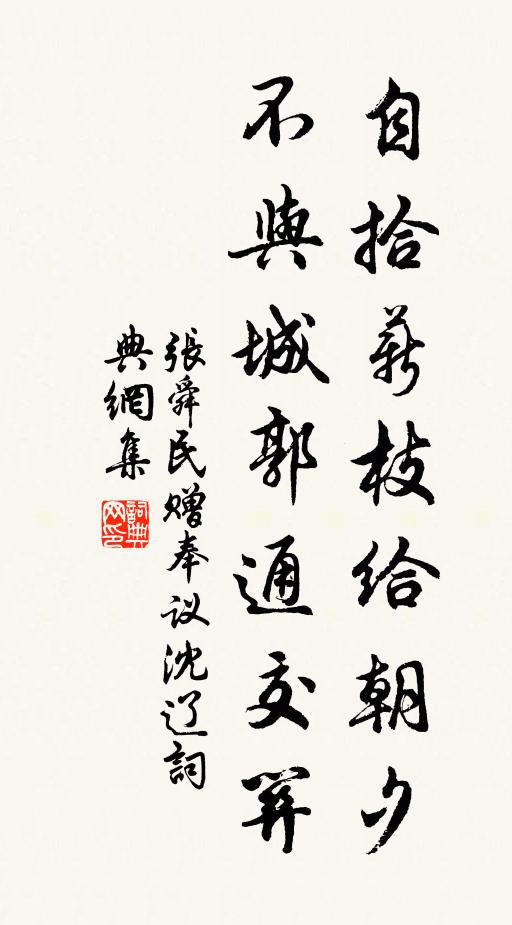 自拾薪枝给朝夕
不與城郭通交關
張舜民赠奉议沈辽詞
典網集
詞典
网印